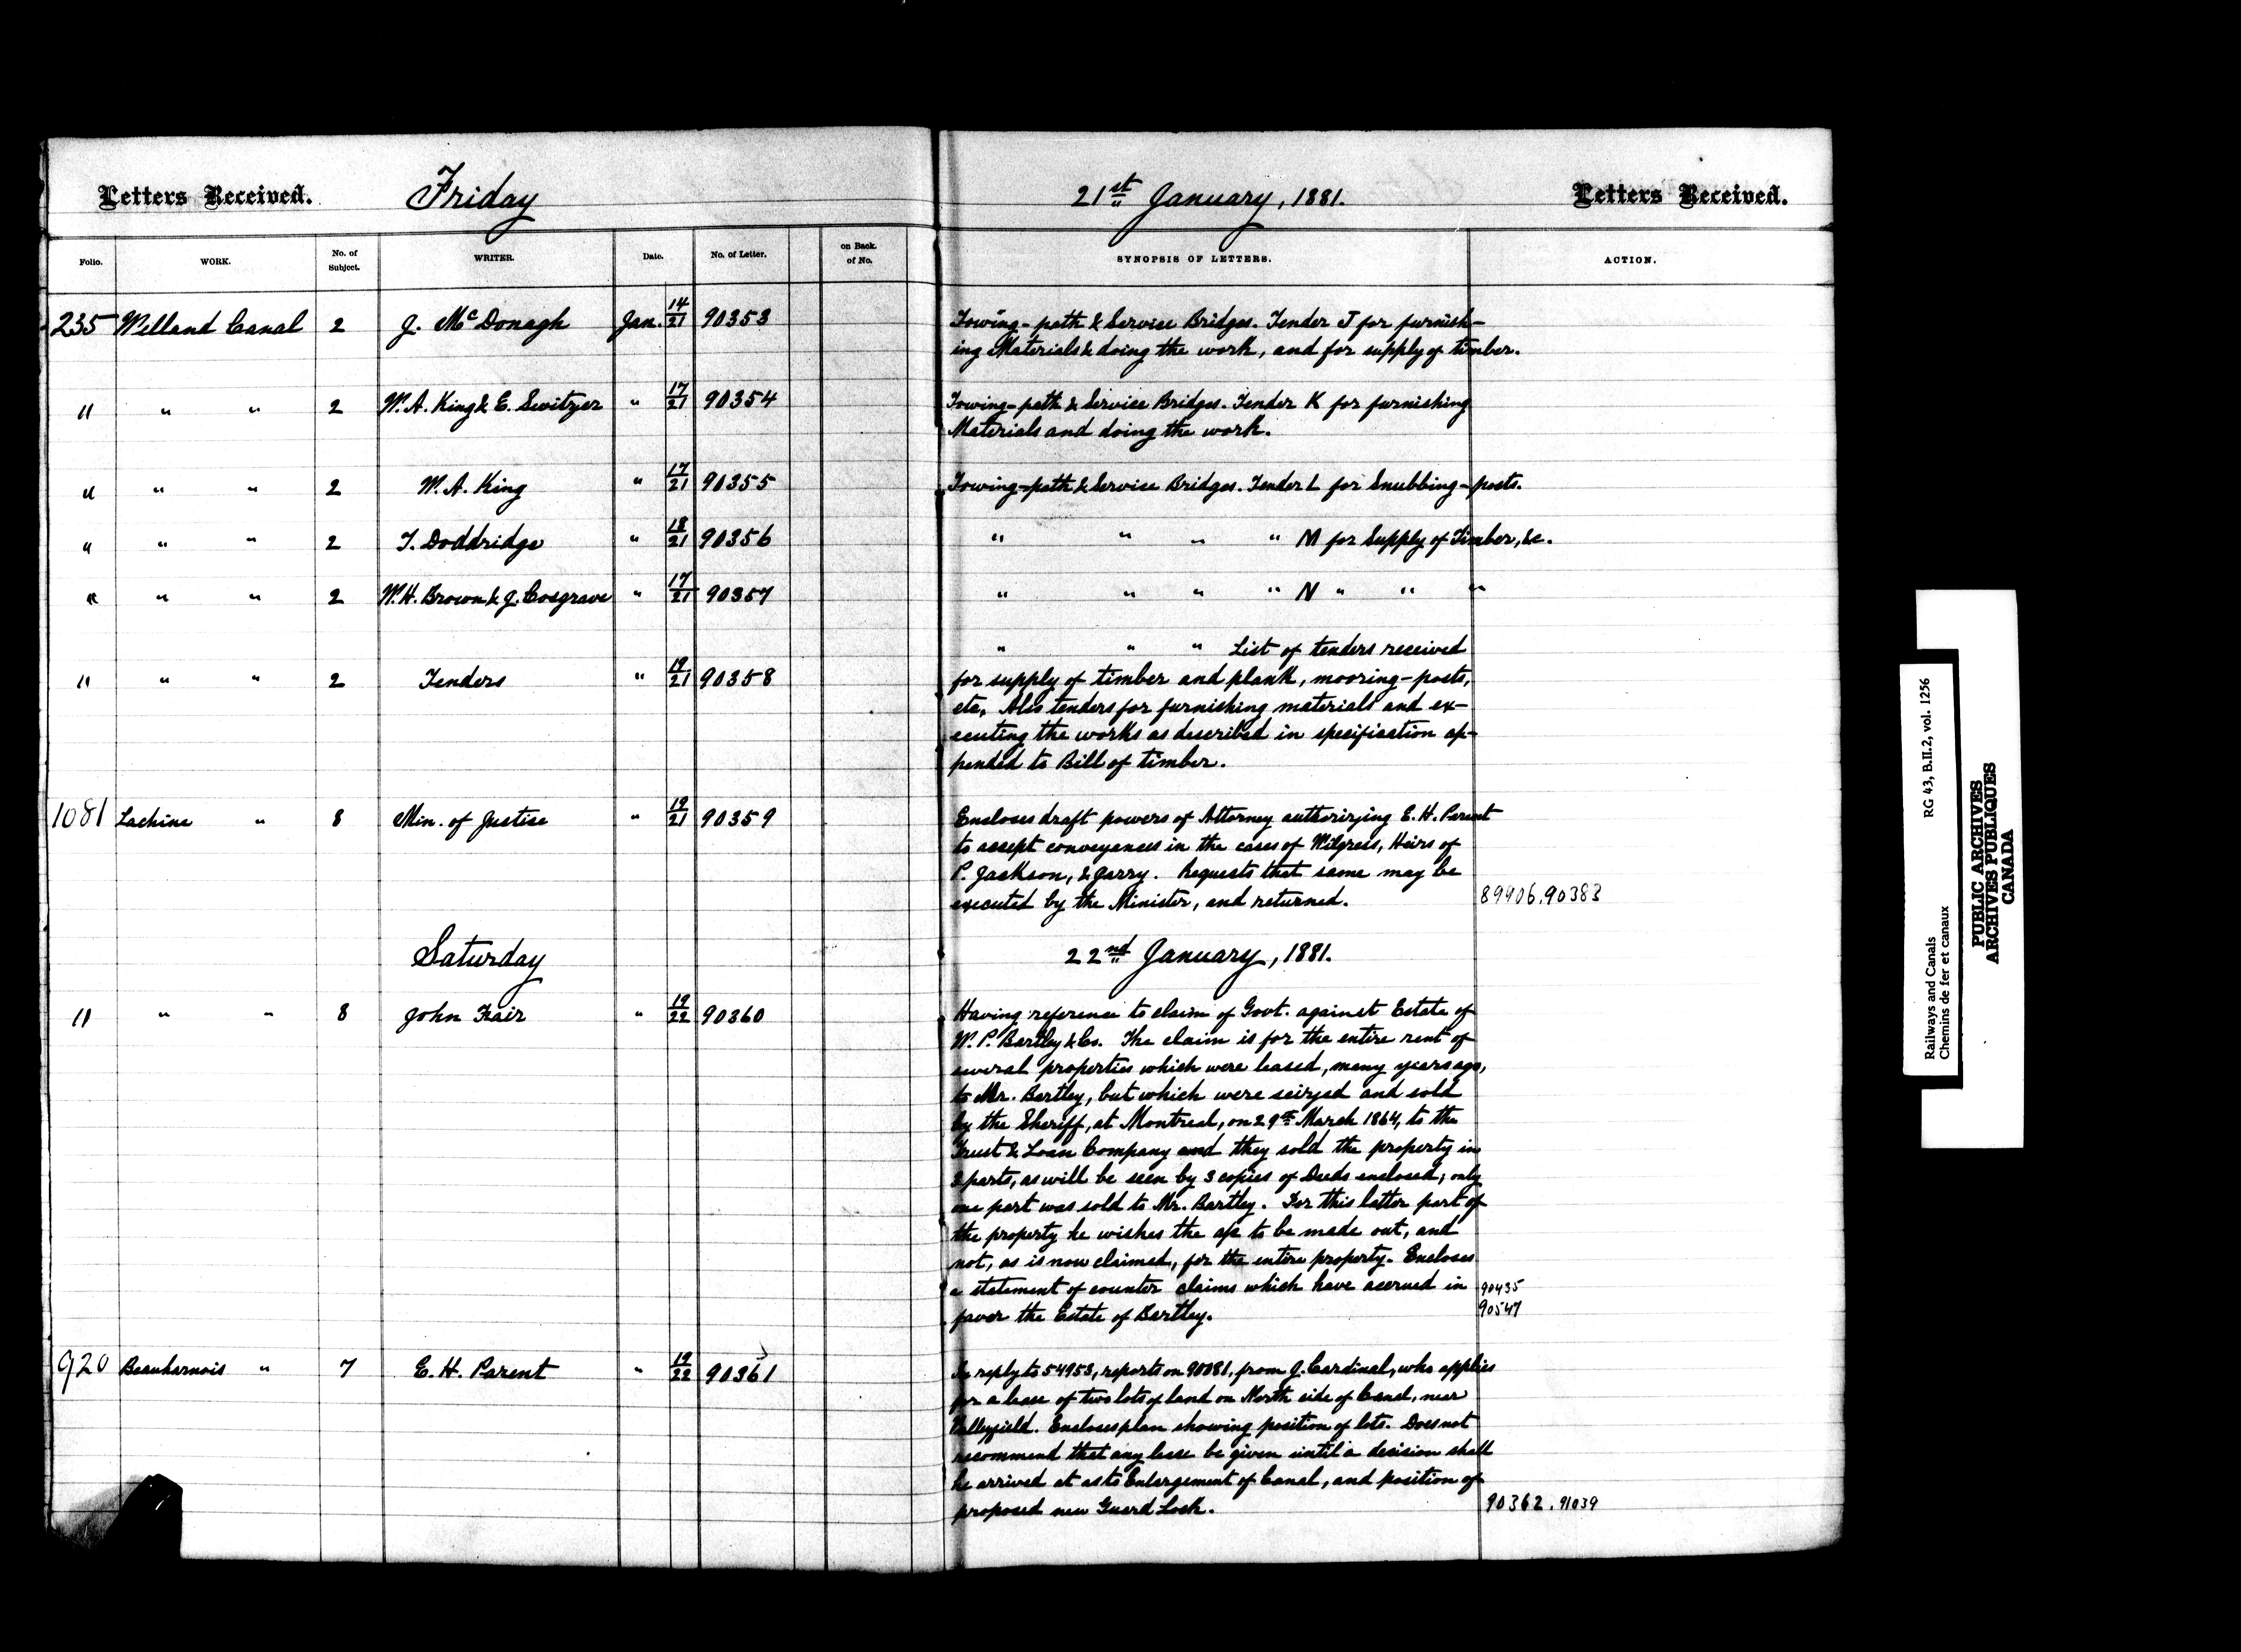 Letters Received. Friday 21st January, 1881. Letters Received.
Folio. WORK. No. of Subject. WRITER. Date. No. of Letter. on Back. of No. SYNOPSIS OF LETTERS. ACTION.
235 Welland Canal 2 J. McDonagh Jan. 14/21 90353 Towing-path & Service Bridges. Tender J for furnish-
ing Materials & doing the work, and for supply of timber.
" " " 2 W. A. King & E. Switzer " 17/21 90354 Towing-path & Service Bridges. Tender K for furnishing
Materials and doing the work.
" " " 2 W. A. King " 17/21 90355 Towing-path & Service Bridges. Tender L for Snubbing-posts.
" " " 2 T. Doddridge " 18/21 90356 " " " " M for Supply of Timber, &c.
" " " 2 W. H. Brown & J. Cosgrave " 17/21 90357 " " " " N " " "
" " " List of tenders received
" " " 2 Tenders " 19/21 90358 for supply of timber and plank, mooring-posts,
etc. Also tenders for furnishing materials and ex-
ecuting the works as described in specification ap-
pended to Bill of timber.
1081 Lachine " 8 Min. of Justice " 19/21 90359 Encloses draft powers of Attorney authorizing E. H. Parent
to accept conveyances in the cases of Wilgress, Heirs of
P. Jackson, & Garry. Requests that same may be
executed by the Minister, and returned. 89906.90383
Saturday 22nd January, 1881.
" " " 8 John Fair " 19/22 90360 Having reference to claim of Govt. against Estate of
W. P. Bartley & Co. The claim is for the entire rent of
several properties which were leased, many years ago,
to Mr. Bartley, but which were seized and sold
by the Sheriff, at Montreal, on 29th March 1864, to the
Trust & Loan Company and they sold the property in
3 parts, as will be seen by 3 copies of Deeds enclosed; only
one part was sold to Mr. Bartley. For this latter part of
the property he wishes the a/c to be made out, and
not, as is now claimed, for the entire property. Encloses
a statement of counter claims which have accrued in 90435
favor the Estate of Bartley. 90547
920 Beauharnois " 7 E. H. Parent " 19/22 90361 In reply to 54953, reports on 90081, from J. Cardinal, who applies
for a lease of two lots of land on North side of Canal, near
Valleyfield. Encloses plan showing position of lots. Does not
recommend that any lease be given until a decision shall
be arrived at as to Enlargement of Canal, and position of
proposed new Guard Lock. 90362.91039
Railways and Canals RG 43, B.II.2, vol. 1256
Chemins de fer et canaux
PUBLIC ARCHIVES
ARCHIVES PUBLIQUES
CANADA